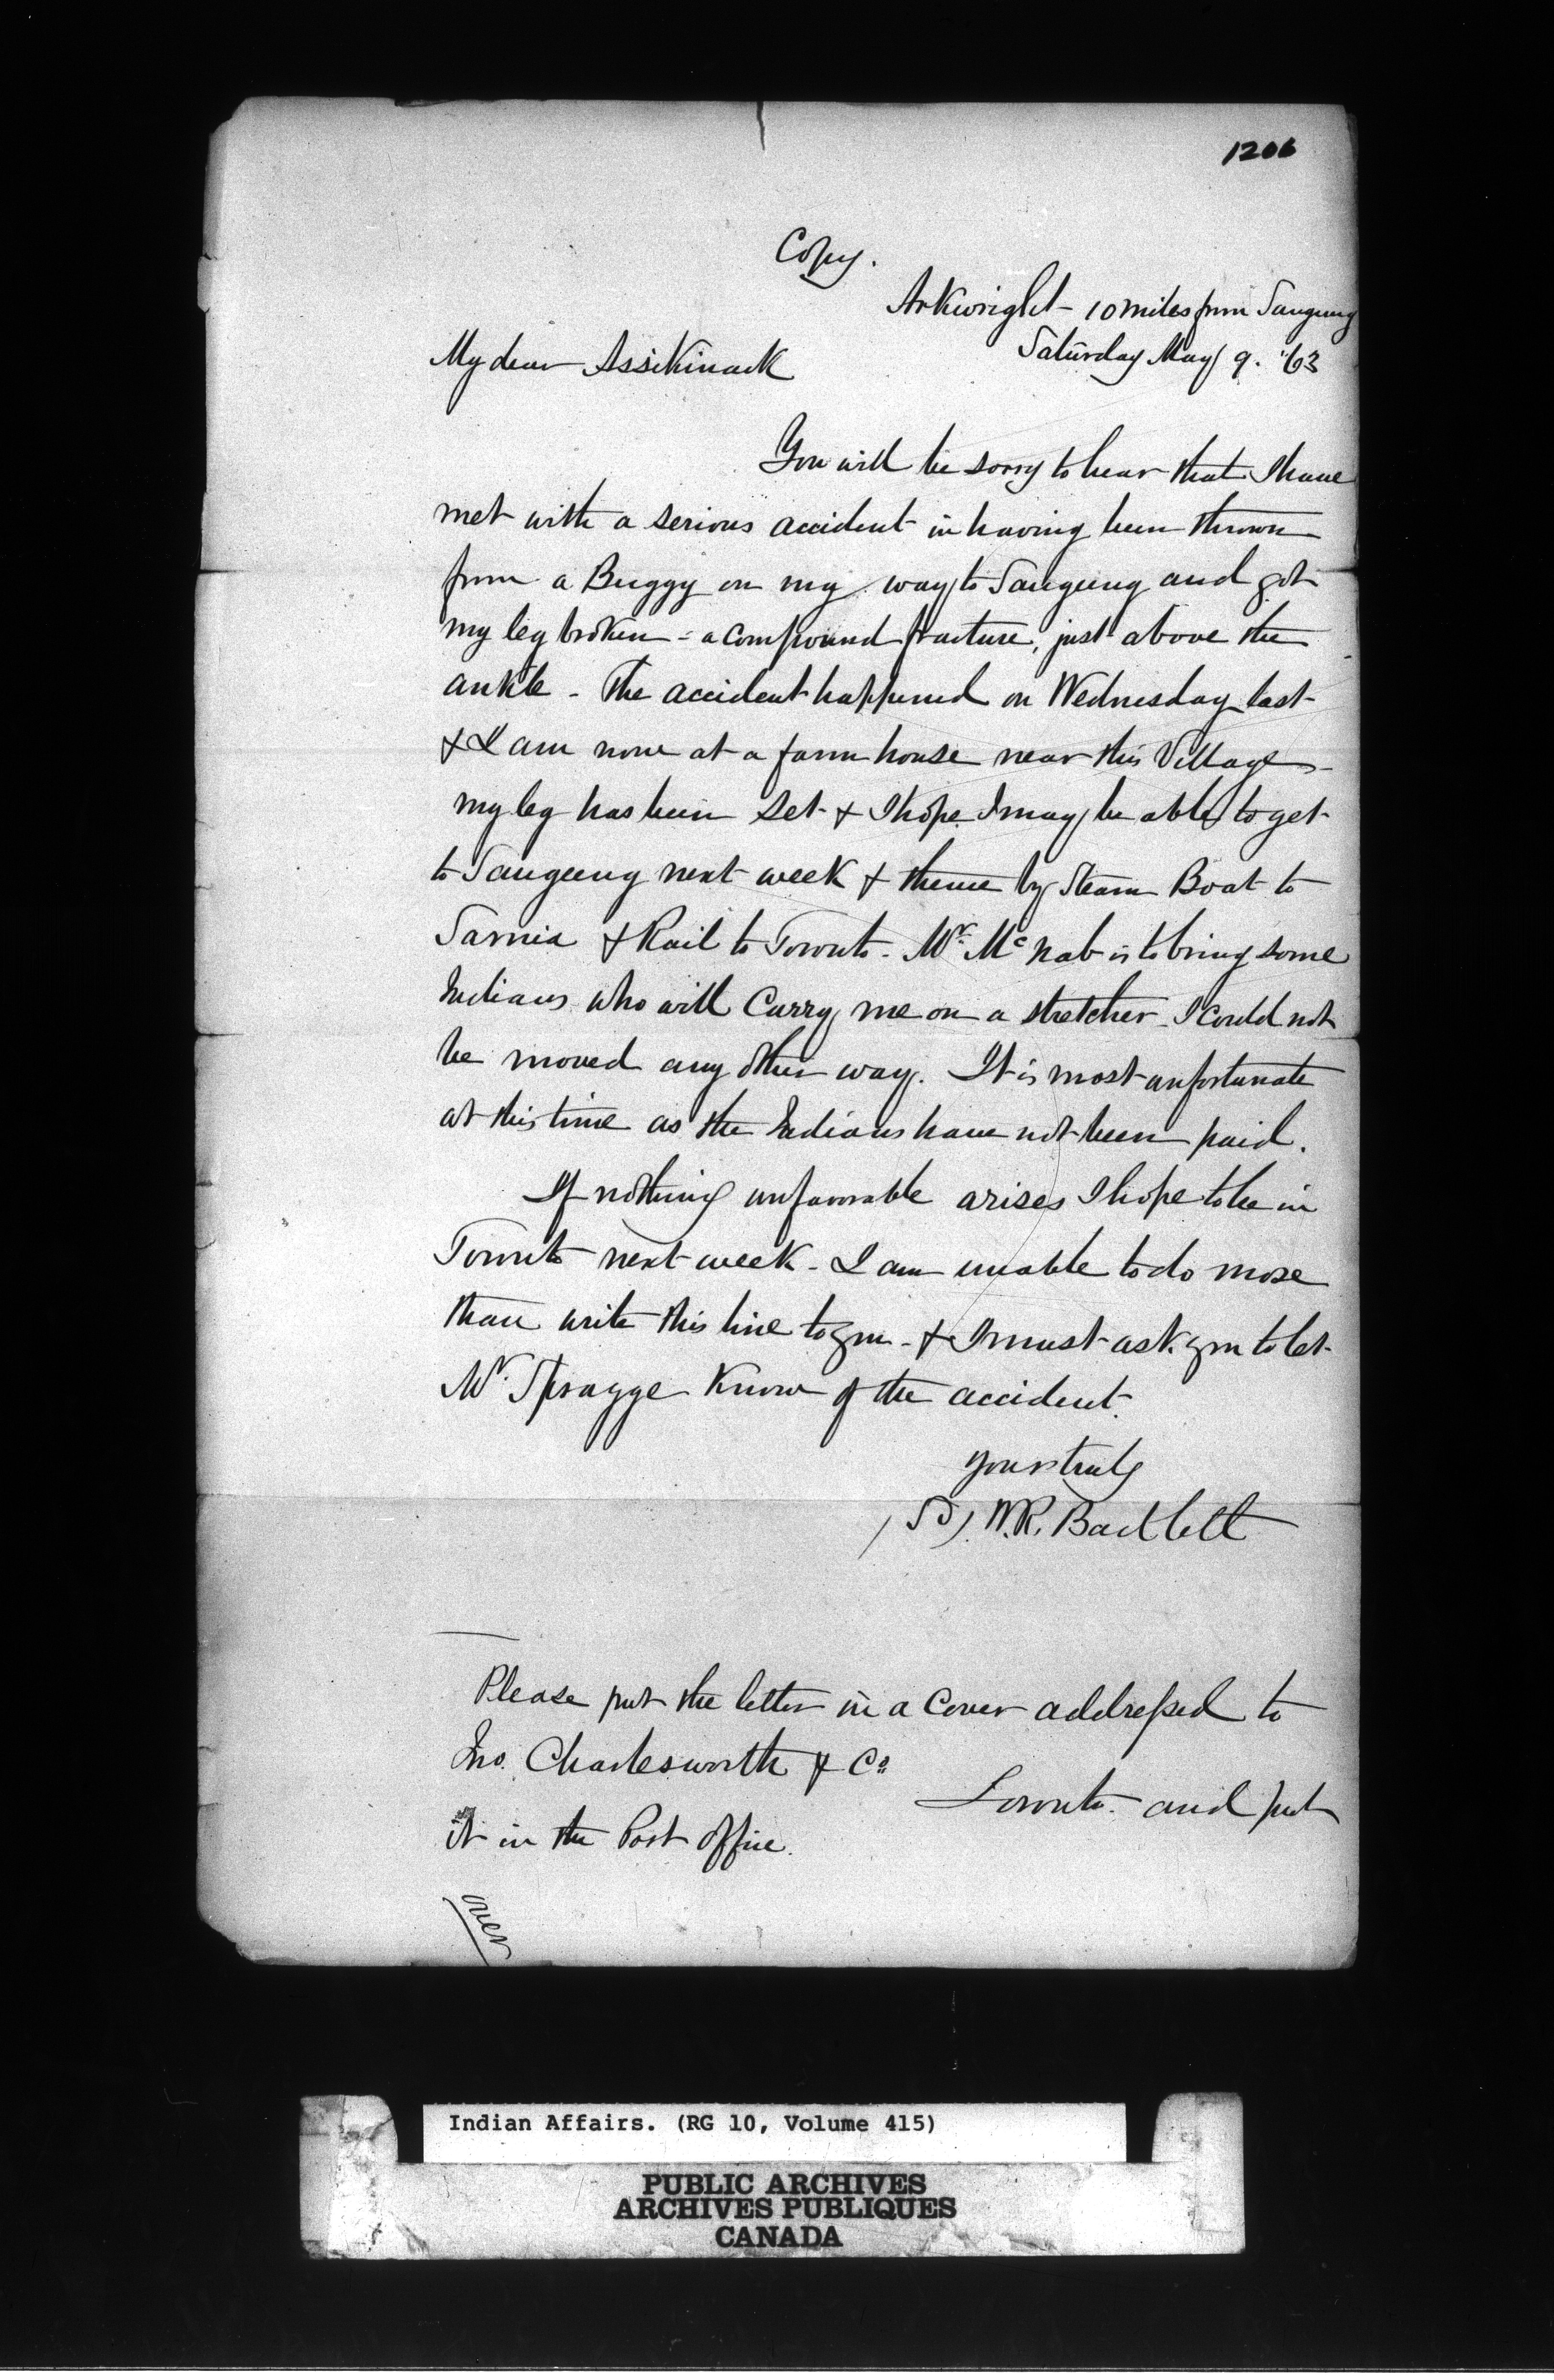 1206
Copy.
Arkwright - 10 miles from Saugeeng
Saturday May 9. '63
My dear Assikinack
You will be sorry to hear that I have
met with a serious accident in having been thrown
from a Buggy on my way to Saugeeng and got
my leg broken = a compound fracture, just above the
ankle - The accident happened on Wednesday last
& I am now at a farm house near this Village -
my leg has been set & I hope I may be able to get
to Saugeeng next week & thence by Steam Boat to
Sarnia & Rail to Toronto - Mr. McNab is to bring some
Indians who will carry me on a stretcher - I could not
be moved any other way. It is most unfortunate
at this time as the Indians have not been paid.
If nothing unfavorable arises I hope to be in
Toronto next week - I am unable to do more
than write this line to you - & I must ask you to let
Mr. Spragge know of the accident.
yours truly
(Sd). W.R. Bartlett
Please put the letter in a Cover addressed to
Jno. Charlesworth & Co
Toronto. and put
it in the Post office.
over
Indian Affairs. (RG 10, Volume 415)
PUBLIC ARCHIVES
ARCHIVES PUBLIQUES
CANADA